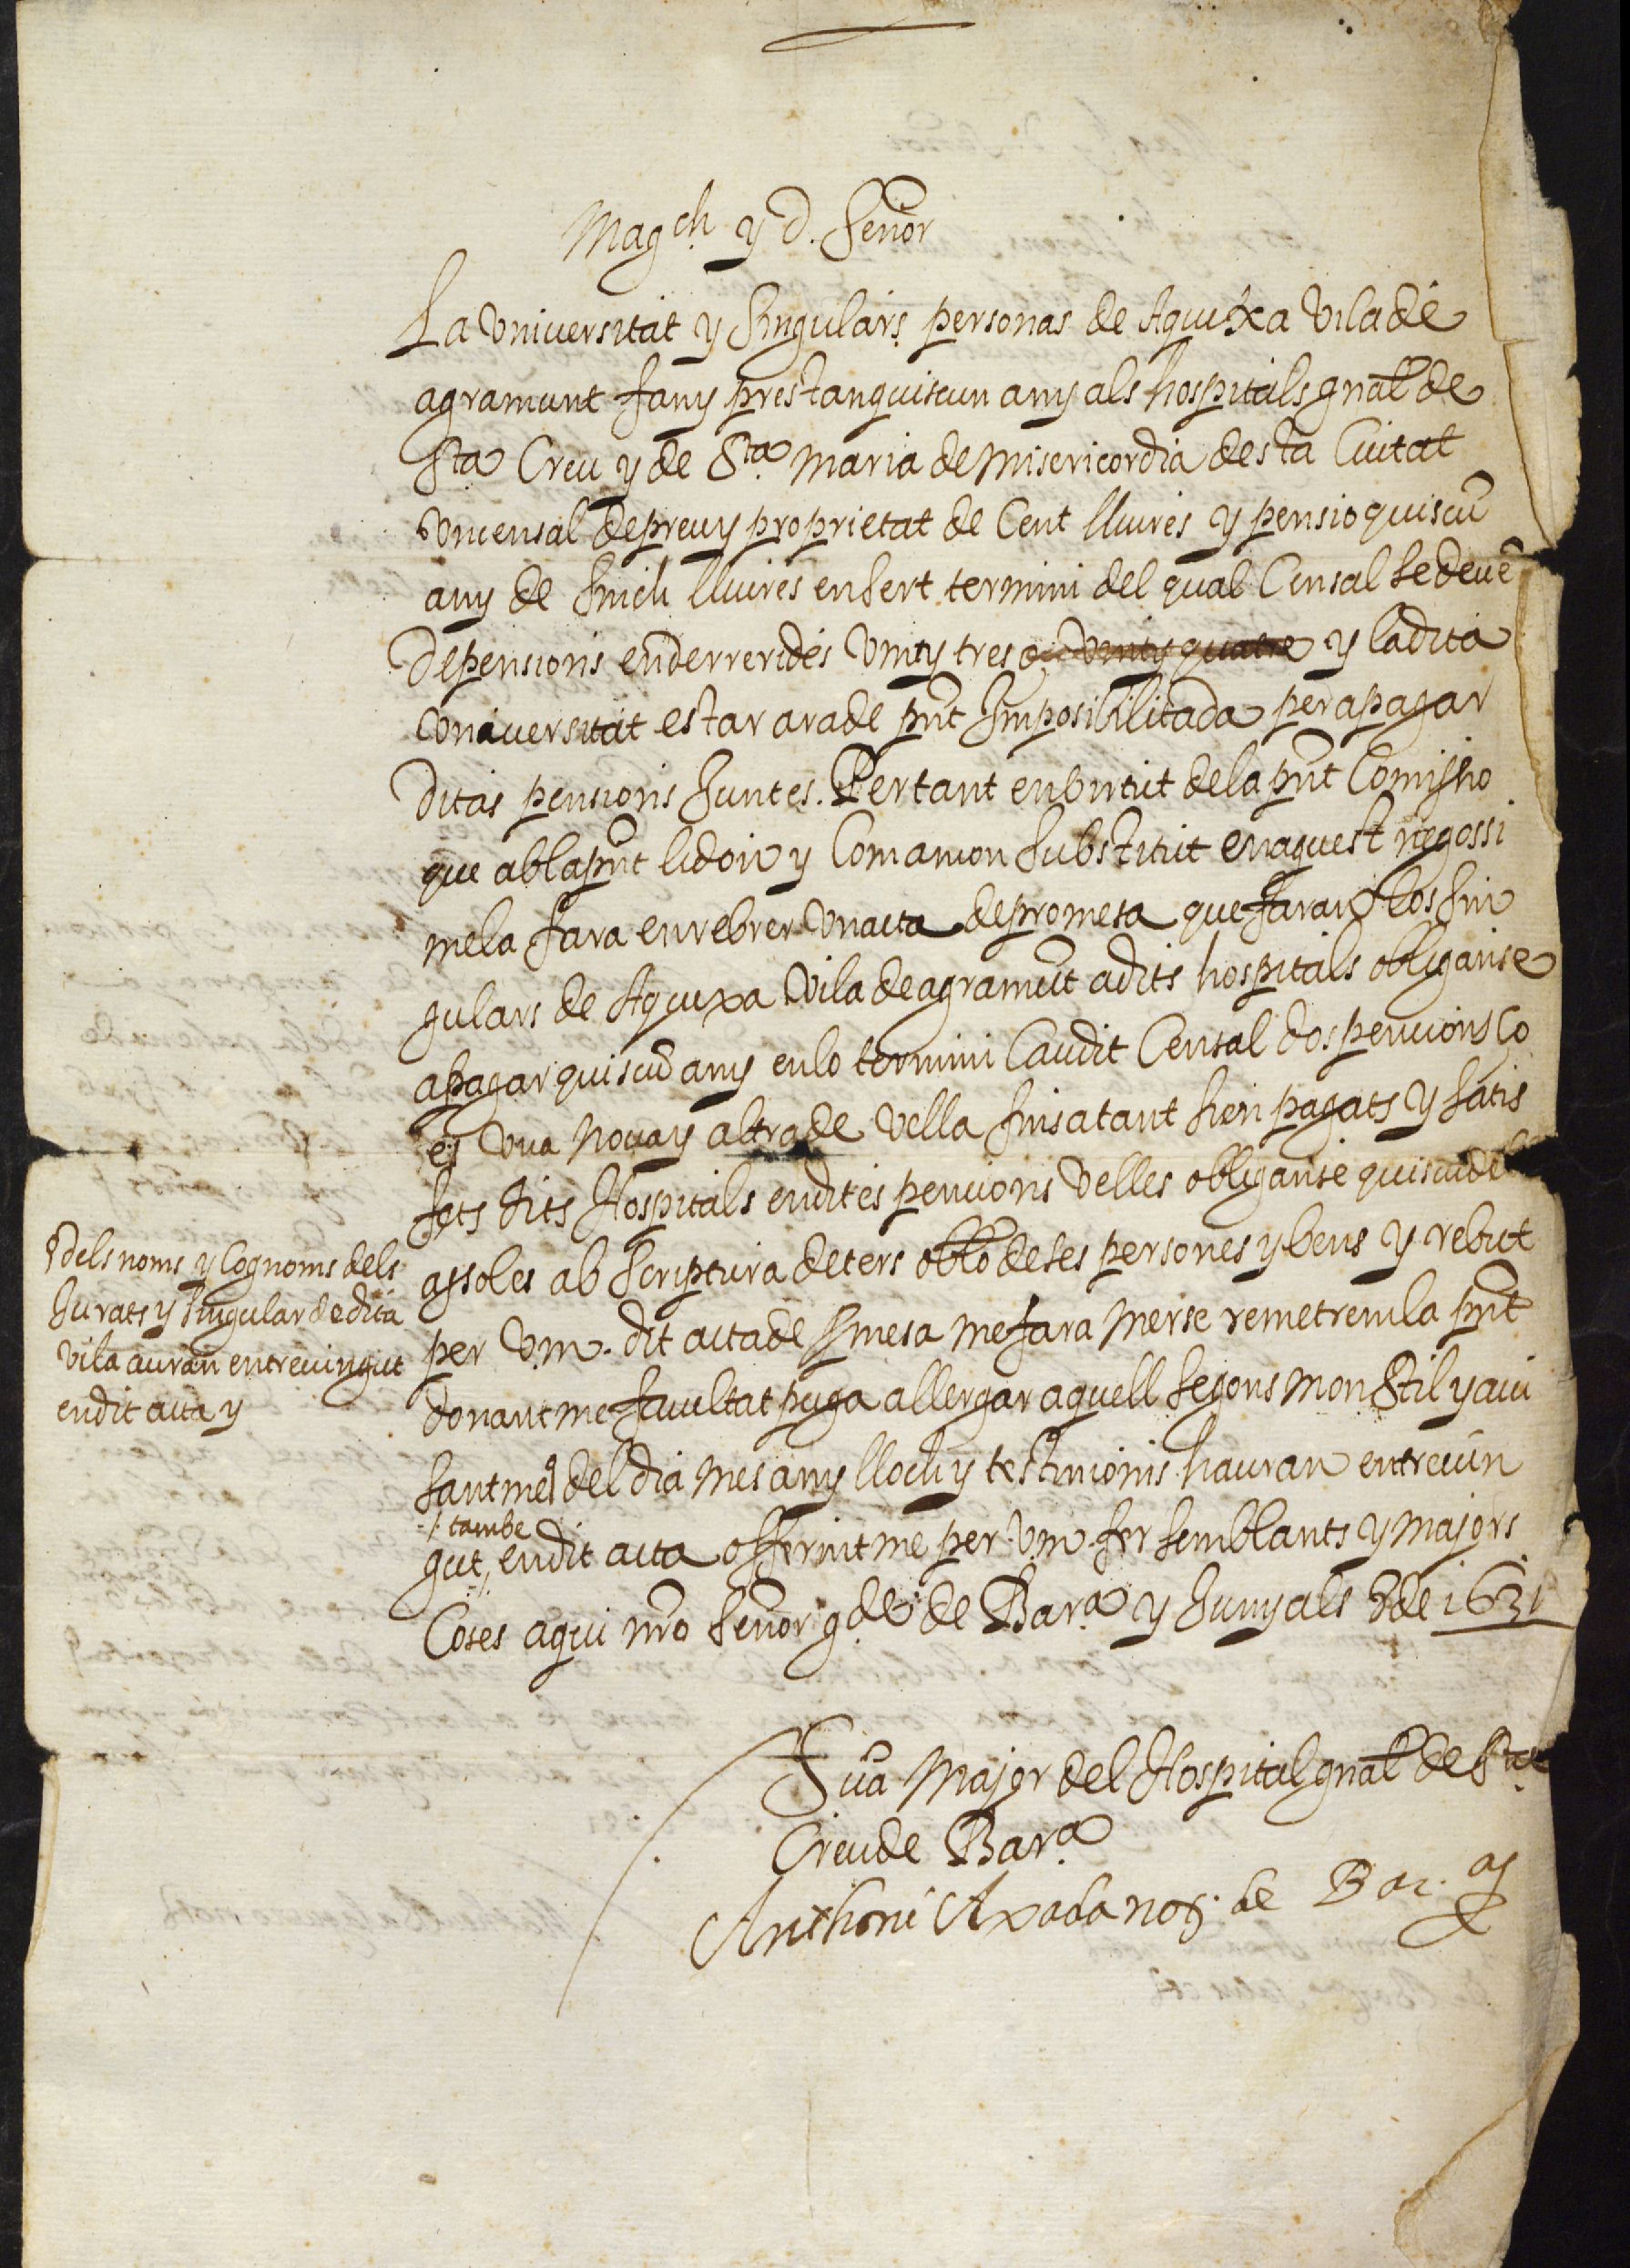 Mag.ch y d. Señor
La Universitat y Singulars personas de Aqueixa Vila de
agramunt fany prestan quiscun any als hospitals gnal de
Sta Creu y de Sta Maria de Misericordia desta Ciutat
un censal de preu y proprietat de Cent lliures y pensio quiscu
any de sinch lliures en sert termini del qual Censal se deuē
de pensions enderrerides vint y tres o vint y quatre y la dita
Universitat estar ara de pnt Imposibilitada per a pagar
ditas pensions Juntes. Per tant en virtut de la pnt Comissio
que ab la pnt li don y Com a mon substitut en aquest negossi
me la fara en rebrer un acta de promesa que faran los sin
gulars de Aqueixa Vila de agramūt a dits hospitals obliganse
a pagar quiscū any en lo termini Cau dit Censal dos pencions ço
es una nova y altra de vella fins a tant sien pagats y satis
fets dits Hospitals en dites pencions velles obliganse quiscū dells
assoles ab scriptura de ters obllo de ses persones y bens y rebut
per v.m. dit acta de pmesa me fara merse remetremla pnt
donantme facultat puga allergar aquell segons mon stil y avi
santme del dia mes any lloch y testimonis hauran entrevin
tambe
gut, en dit acta offerintme per v.m. fer semblants y majors
Coses a qui nro señor g.de de Bar.a y Juny als 3 de 1631
dels noms y Cognoms dels
Jurats y singular de dita
vila auran entrevingut
en dit acta y
Scriva Major del Hospital gnal de Sta
Creu de Bar.a
Anthoni Axada not. de Bar.a